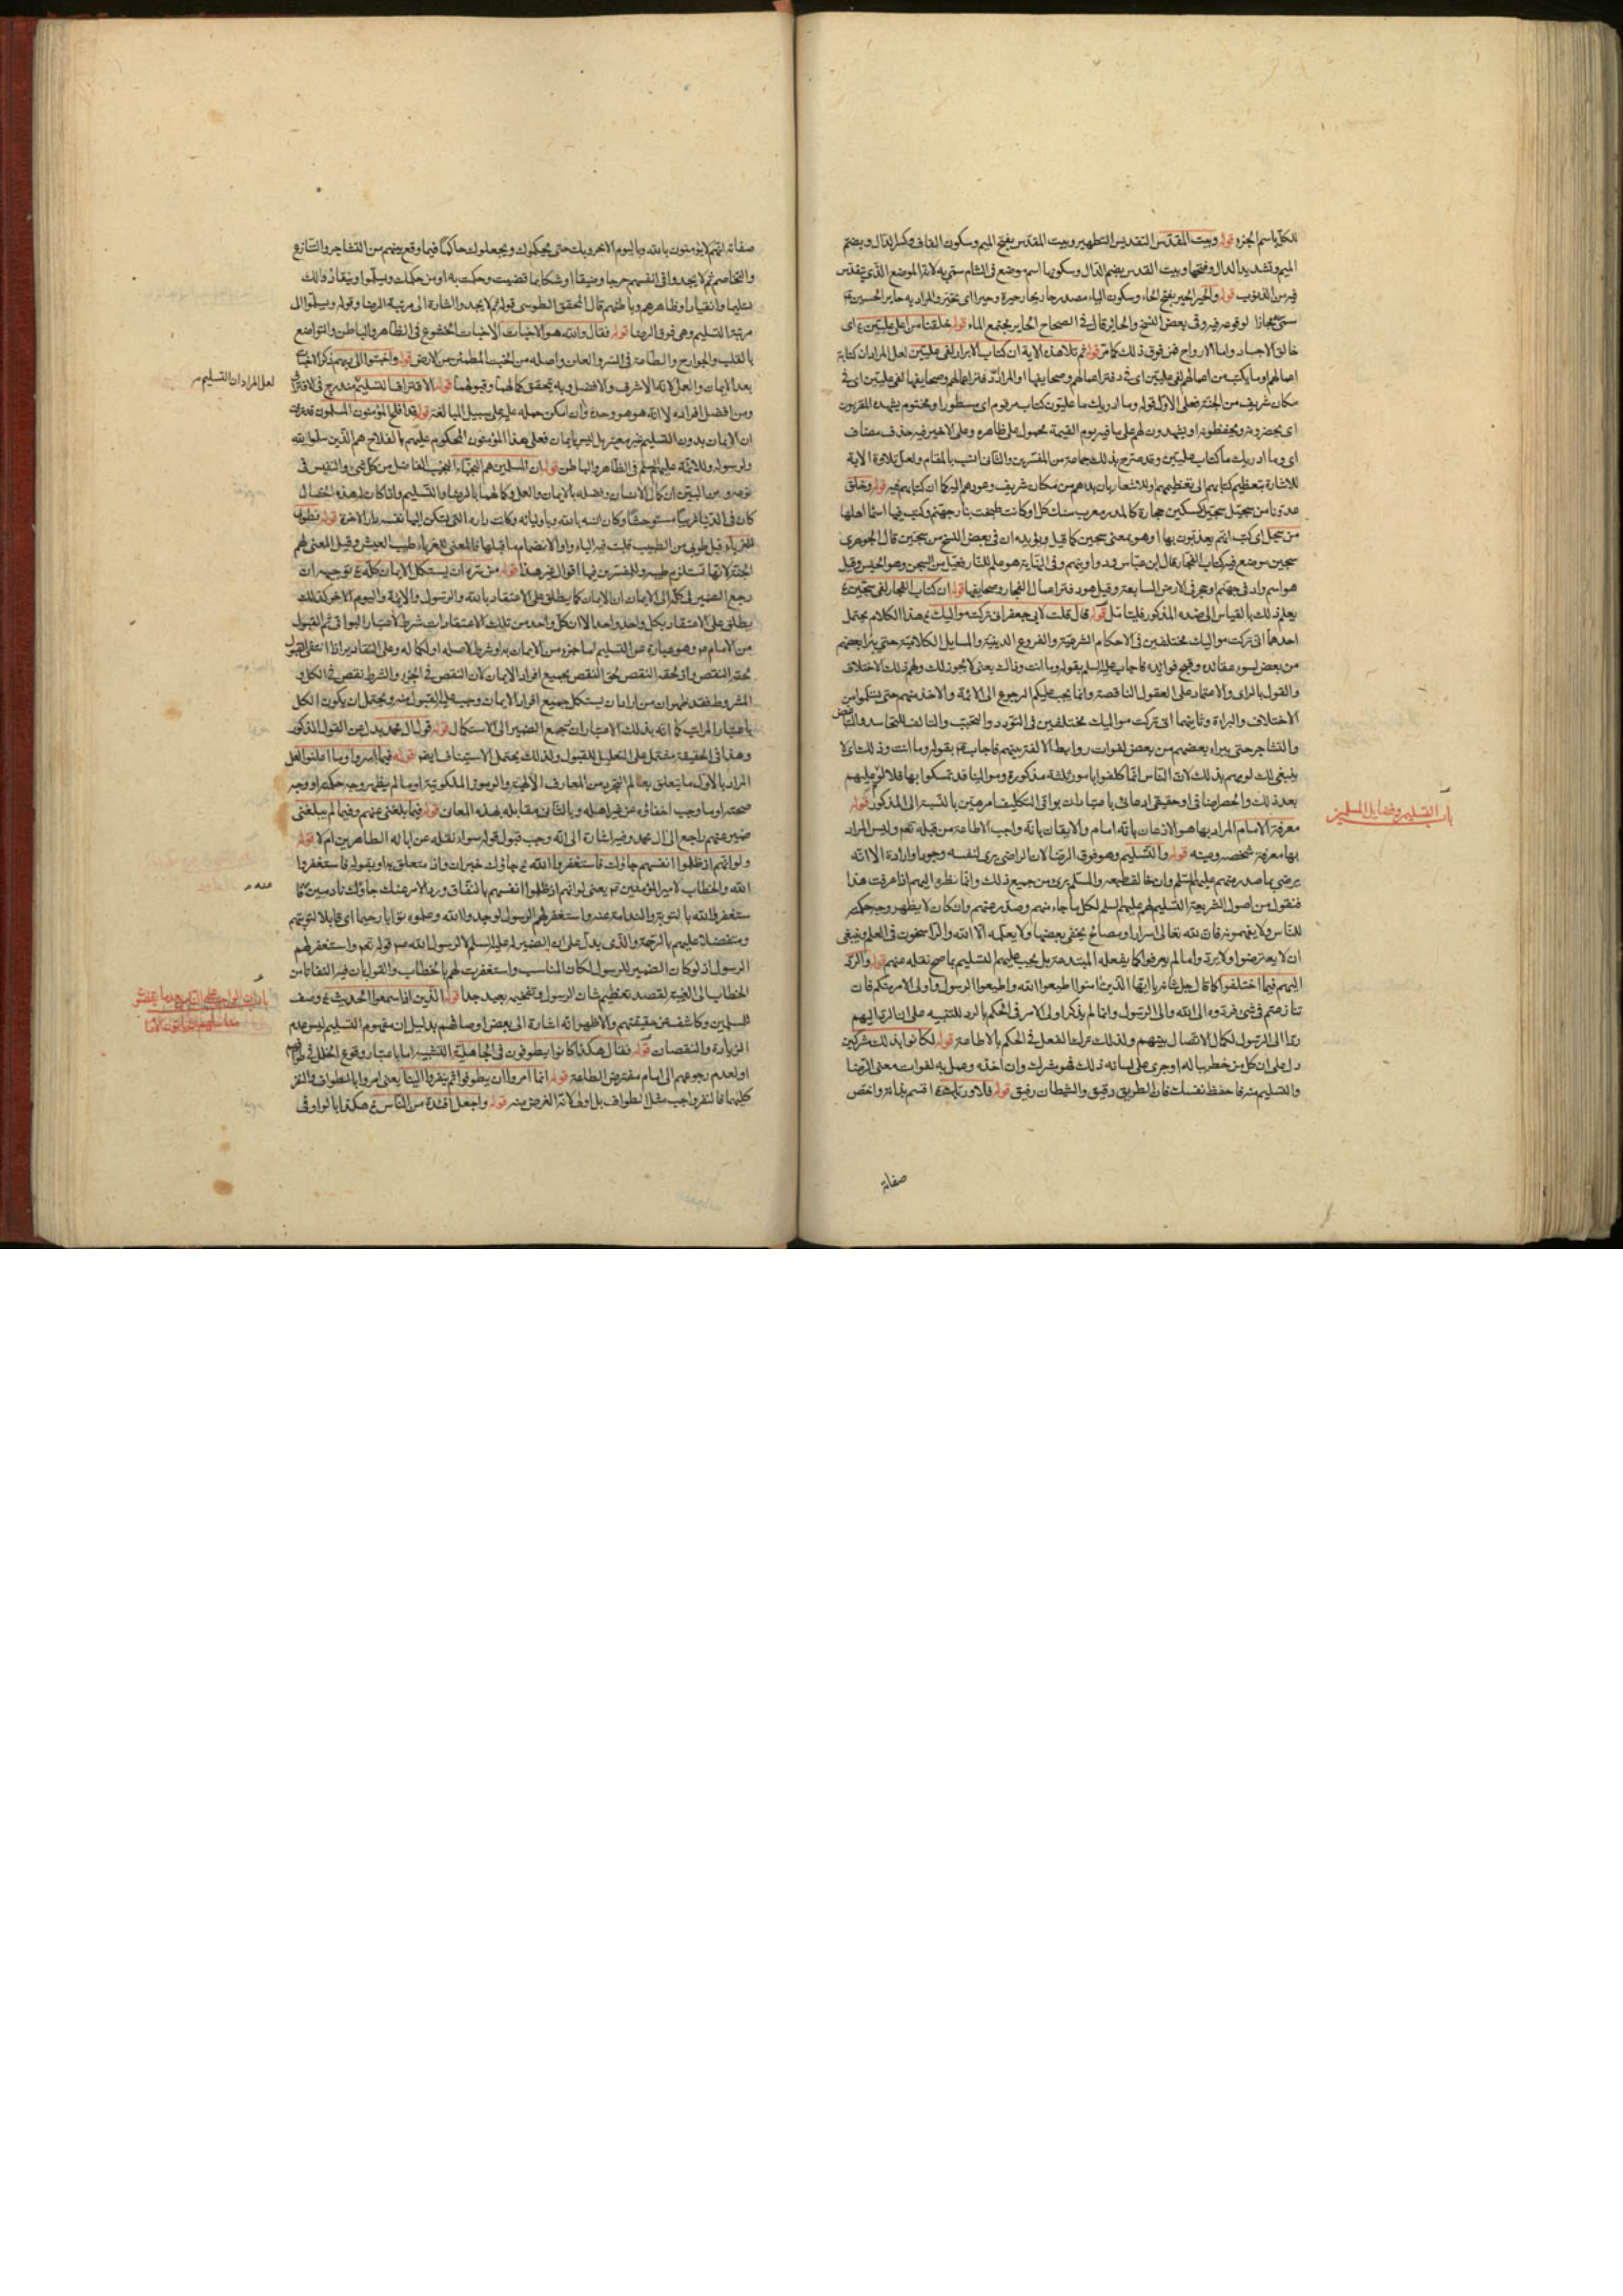 للكل باسم الجزء قوله وبيت المقدس التقديس التطهير وبيت المقدس بفتح الميم وسكون القاف وكسر الدال وبضم
الميم وتشديد الدال وفتحها وبيت القدس بضم الدال وسكونها اسم موضع في الشام سمي به لانه الموضع الذي يتقدس
فيه من الذنوب قوله والحير الحير بفتح الحاء وسكون الياء مصدر حار يحار حيرة وحيرا اي تحير والمراد به حاير الحسين ع
سمي مجازا لوقوعه فيه وفي بعض النسخ والحائر قال في الصحاح الحاير مجتمع الماء قوله خلقنا من اعلى عليين ع اى
خالق الاجساد واما الارواح فمن فوق ذلك كما مر قوله ثم تلا هذه الاية ان كتاب الابرار لفي عليين لعل المراد ان كتابة
اعمالهم او ما يكتب من اعمالهم لفي عليين اى في دفتر اعمالهم وصحايفها او المراد ان دفتر اعمالهم وصحايفها لفي عليين اى في
مكان شريف من الجنة فعلى الاول قوله وما ادريك ما عليون كتاب مرقوم اى مسطور او مختوم يشهده المقربون
اى يحضرونه ويحفظونه او يشهدون لهم على ما فيه يوم القيمة محمول على ظاهره وعلى الاخير فيه حذف مضاف
اى وما ادريك ما كتاب عليين وقد صرح بذلك جماعة من المفسرين والثاني انسب بالمقام ولعل تلاوة الاية
للاشارة بتعظيم كتابهم الى تعظيمهم وللاشعار بان بدءهم من مكان شريف وعودهم اليه كما ان كتابهم فيه قوله وخلق
عدونا من سجيل سجيل كسكين حجارة كالمدر معرب سنك كل او كانت طبخت بنار جهنم وكتب فيها اسماء اهلها
من سجل اى كتب انهم يعذبون بها او هو بمعنى سجين كما قيل ويؤيده ان في بعض النسخ من سجين قال الجوهرى
سجين موضع فيه كتاب الفجار قال ابن عباس ودواوينهم وفي النهاية هو علم للنار فعيل من السجن وهو الحبس وقيل
هو اسم واد في جهنم او حجر في الارض السابعة وقيل هو دفتر اعمال الفجار وصحايفها قوله ان كتاب الفجار لفي سجين ع
يعلم ذلك بالقياس الى ضده المذكور فلتامل قوله قال قلت لابي جعفر اني تركت مواليك ع هذا الكلام يحتمل
احدهما اني تركت مواليك مختلفين في الاحكام الشرعية والفروع الدينية والمسايل الكلامية حتى يبرأ بعضهم
من بعض لسوء عقائده وقبح فوائده فاجاب عليه السلم بقوله وما انت وذاك يعنى لا يجوز لك ولهم ذلك الاختلاف
والقول بالراى والاعتماد على العقول الناقصة وانما يجب عليكم الرجوع الى الائمة والاخذ منهم حتى
الاختلاف والبراءة وثانيهما اني تركت مواليك مختلفين في التودد والتحبب والتالف للتحاسد والتباغض
والتشاجر حتى يبرأ بعضهم من بعض لفوات روابط الالفة بينهم فاجاب ع بقوله وما انت وذلك اى لا
ينبغي لك لومهم بذلك لان الناس انما كلفوا بامور ثلثة مذكورة وموالينا قد تمسكوا بها فلا لوم عليهم
بعد ذلك والحصر اضافي او حقيقي ادعائي باعتبار ان بواقي التكاليف امر هين بالنسبة الى المذكور قوله
معرفة الامام المراد بها هو الاذعان بانه امام والايقان بانه واجب الاطاعة من قبله تعم وليس المراد
بها معرفة شخصه وعينه قوله والتسليم وهو فوق الرضا لان الراضي يرى لنفسه وجودا وارادة الا انه
يرضى بما صدر منهم عليهم السلم وان خالف طبعه والمسلم برئ من جميع ذلك وانما نظره اليهم اذا عرفت هذا
فنقول من اصول الشريعة التسليم لهم عليهم السلم لكل ما جاء منهم وصدر عنهم وان كان لا يظهر وجه حكمته
للناس ولا يفهمونه فان لله تعالى اسرارا ومصالح يخفى بعضها ولا يعلمه الا الله والراسخون في العلم وينبغي
ان لا يعترضوا ولا يردوا ما لم يعرفوا كما يفعله المبتدعة بل يجب عليهم التسليم بما صح نقله عنهم قوله والرد
اليهم فيما اختلفوا كما قال جل شانه يا ايها الذين امنوا اطيعوا الله واطيعوا الرسول واولى الامر منكم فان
تنازعتم في شئ فردوه الى الله والى الرسول وانما لم يذكر اولى الامر في الحكم بالرد للتنبيه على ان الرد اليهم
رد الى الرسول لكمال الاتصال بينهم ولذلك ترك الفعل في الحكم بالاطاعة قوله لكانوا بذلك مشركين
دل على ان كل من خطر بباله او جرى على لسانه ذلك فهو مشرك وان اخذه وعمل به لفوات معنى الرضا
والتسليم منه فاحفظ نفسك فان الطريق دقيق والشيطان رفيق قوله فلا وربك ع اقسم بذاته واخص
صفاته
باب التسليم وفضايل المسلمين
صفاته انهم لا يؤمنون بالله وباليوم الاخر وبك حتى يحكموك ويجعلوك حاكما فيما وقع بينهم من التشاجر والتنازع
والتخاصم ثم لا يجدوا في انفسهم حرجا وضيقا او شكا مما قضيت وحكمت به او من حكمك ويسلموا وينقادوا لك
تسليما وانقيادا بظاهرهم وباطنهم قال المحقق الطوسي قوله ثم لا يجدوا اشارة الى مرتبة الرضا وقوله ويسلموا الى
مرتبة التسليم وهي فوق الرضا قوله فقال والله هو الاخبات الاخبات الخشوع في الظاهر والباطن والتواضع
بالقلب والجوارح والطاعة في السر والعلن واصله من الخبت المطمئن من الارض قوله واخبتوا الى ربهم ذكر الاخبات
بعد الايمان والعمل لانه الاشرف والافضل وبه يتحقق كمالهما وقبولهما قوله الاقتراف التسليم مندرج في الاقتراف
ومن افضل افراده لا انه هو هو وحده وان امكن حمله عليه على سبيل المبالغة قوله قد افلح المؤمنون المسلمون
ان الايمان بدون التسليم غير معتبر بل ليس بايمان فعلى هذا المؤمنون المحكوم عليهم بالفلاح هم الذين سلموا لله
ولرسوله وللائمة عليهم السلم في الظاهر والباطن قوله ان المسلمين هم النجباء النجيب الفاضل من كل شئ والنفيس في
نوعه ومن البين ان كمال الانسان وفضله بالايمان والعمل وكمالهما بالرضا والتسليم واذا كان له هذه الخصال
كان في الدنيا غريبا مستوحشا وكان انسه بالله وباوليائه وكانت داره التي تسكن اليها نفسه دار الاخرة قوله فطوبى
للغرباء قيل طوبى من الطيب قلبت فيه الياء واوا لانضمام ما قبلها فالمعنى للغرباء طيب العيش وقيل المعنى لهم
الجنة لانها تستلزم طيبه وللمفسرين فيها اقوال غير هذا قوله من سره ان يستكمل الايمان كله ع توجيه ان
رجع الضمير في كله الى الايمان ان الايمان كما يطلق على الاعتقاد بالله والرسول والائمة واليوم الاخر كذلك
يطلق على الاعتقاد بكل واحد واحد الا ان كل واحد من تلك الاعتقادات شرط لاعتبار البواقي ثم القبول
من الامام هو وهو عبارة عن التسليم اما جزء من الايمان به او شرط لاصله او لكماله وعلى التقادير اذا انتفى القبول
لحقه النقص واذا لحقه النقص لحق النقص بجميع افراد الايمان لان النقص في الجزء والشرط نقص في الكل و
المشروط فقد ظهر ان من اراد ان يستكمل جميع افراد الايمان وجب عليه القبول منه ويحتمل ان يكون الكل
باعتبار المراتب كما انه بذلك الاعتبار ان رجع الضمير الى الاستكمال قوله قول ال محمد بدل من القول المذكور
وهذا في الحقيقة مشتمل على التعليل للقبول ولذلك يحتمل الاستيناف ايضا قوله فيما اسروا وما اعلنوا لعل
المراد بالاول ما يتعلق بعالم التجرد من المعارف الالهية والرموز الملكوتية او ما لم يظهر وجه حكمته او وجه
صحته او ما وجب اخفاؤه عن غير اهله وبالثاني مقابله بهذه المعان قوله فيما بلغني عنهم وفيما لم يبلغني
ضمير عنهم راجع الى ال محمد وفيه اشارة الى انه وجب قبول قوله سواء نقله عن ابائه الطاهرين ام لا قوله
ولو انهم اذ ظلموا انفسهم جاؤك فاستغفروا الله ع جاؤك خبر ان واذ متعلق به او بقوله فاستغفروا
الله والخطاب لامير المؤمنين ع يعنى لو انهم اذ ظلموا انفسهم بالنفاق ورد الامر عنك جاؤك نادمين فا
ستغفروا الله بالتوبة والندامة عنه واستغفر لهم الرسول لوجدوا الله وعلموه توابا رحيما اى قابلا لتوبتهم
ومتفضلا عليهم بالرحمة والذى يدل على ان الضمير له عليه السلم لا لرسول الله ص قوله تعم واستغفر لهم
الرسول اذ لو كان الضمير للرسول لكان المناسب واستغفرت لهم بالخطاب والقول بان فيه التفاتا من
الخطاب الى الغيبة لقصد تعظيم شان الرسول وتفخيمه بعيد جدا قوله الذين اذا سمعوا الحديث ع وصف
للمسلمين وكاشف عن حقيقتهم والاظهر انه اشارة الى بعض اوصافهم بدليل ان مفهوم التسليم ليس عدم
الزيادة والنقصان قوله فقال هكذا كانوا يطوفون في الجاهلية التشبيه اما باعتبار وقوع الخلل في طوافهم
او لعدم رجوعهم الى امام مفترض الطاعة قوله انما امروا ان يطوفوا ثم ينفروا الينا يعنى امروا بالطواف والنفر
كليهما فالنفر واجب مثل الطواف بل اولى لانه الغرض منه قوله واجعل افئدة من الناس ع هكذا بالواو في
لعل المراد ان التسليم
منه
باب ان الواجب على الناس بعد ما يقضون